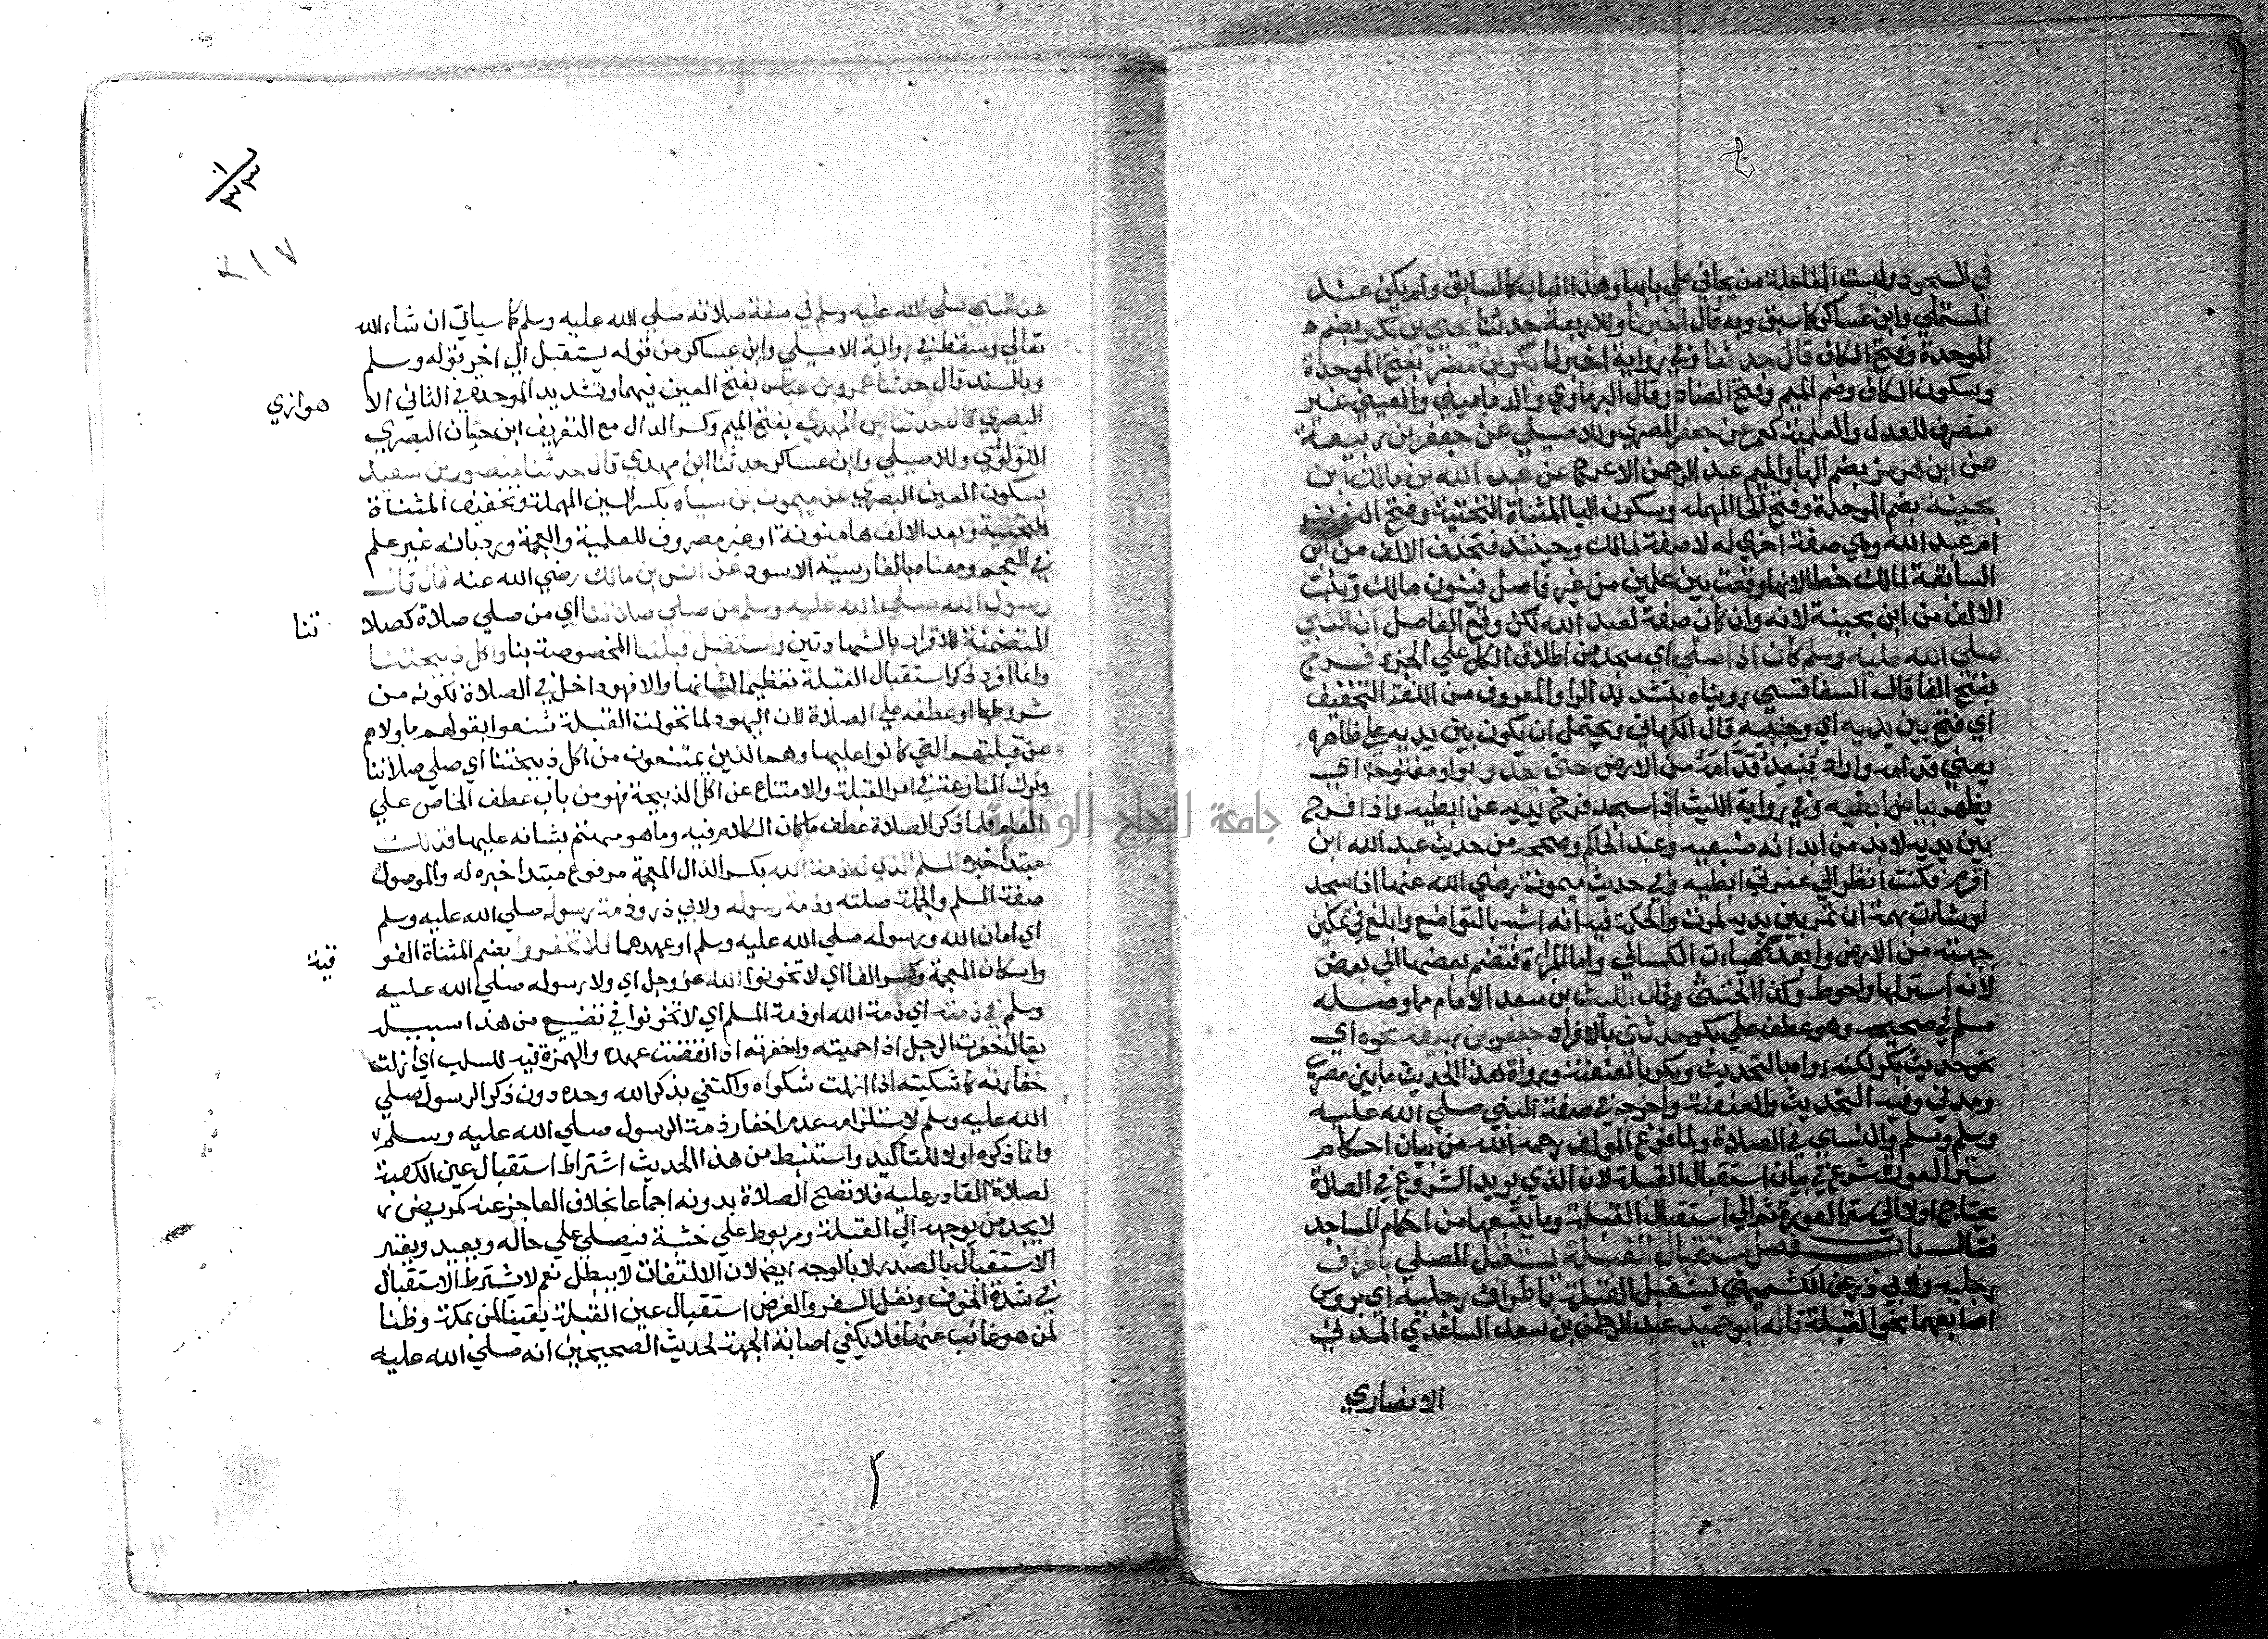 في السجود وليست المفاعلة من يجافي علي بابها وهذا الباب كالسابق ولم يكن عند
المستملي وابن عساكر كما سبق وبه قال اخبرنا وللاربعة حدثنا يحيي بن بكير بضم
الموحدة وفتح الكاف قال حدثنا وفي رواية اخبرنا بكر بن مضر بفتح الموحدة
وسكون الكاف وضم الميم وفتح الضاد وقال البرماوي والدماميني والعيني غير
منصرف للعدل والعلمية كعمر عن جعفر المصري وللاصيلي عن جعفر بن ربيعة
عن ابن هرمز بضم الها والميم عبد الرحمن الاعرج عن عبد الله بن مالك ابن
بحينة بضم الموحدة وفتح الحا المهملة وسكون اليا المثناة التحتية وفتح النون
ام عبد الله وهي صفة اخري له لا صفة لمالك وحينئذ فتحذف الالف من ابن
السابقة لمالك خطا لانها وقعت بين علمين من غير فاصل فينون مالك وتثبت
الالف من ابن بحينة لانه وان كان صفة لعبد الله لكن وقع الفاصل ان النبي
صلي الله عليه وسلم كان اذا صلي اي سجد من اطلاق الكل علي الجزء فرج
بفتح الفا قال السفاقسي رويناه بتشديد الرا والمعروف من اللغة التخفيف
اي فتح بين يديه اي وجنبيه قال الكرماني ويحتمل ان يكون بين يديه علي ظاهره
يعني قدامه واراد يبعد قدامه من الارض حتي يبدو بواو مفتوحة اي
يظهر بياض ابطيه وفي رواية الليث اذا سجد فرج يديه عن ابطيه واذا فرج
بين يديه لا بد من ابدائه ضبعيه وعند الحاكم وصححه من حديث عبد الله ابن
اقرم فكنت انظر الي عفرتي ابطيه وفي حديث ميمونة رضي الله عنها اذا سجد
لو شاءت بهمة ان تمر بين يديه لمرت والحكمة فيه انه اشبه بالتواضع وابلغ في تمكين
جبهته من الارض وابعد من هيات الكسالي واما المراة فتضم بعضها الي بعض
لانه استر لها واحوط وكذا الخنثي وقال الليث بن سعد الامام مما وصله
مسلم في صحيحه وهو عطف علي بكر حدثني بالافراد جعفر بن ربيعة نحوه اي
نحو حديث بكر لكنه رواه بالتحديث وبكر بالعنعنة ورواة هذا الحديث ما بين مصري
ومدني وفيه التحديث والعنعنة واخرجه في صفة النبي صلي الله عليه
وسلم ومسلم والنساي في الصلاة ولما فرغ المولف رحمه الله من بيان احكام
ستر العورة شرع في بيان استقبال القبلة لان الذي يريد الشروع في الصلاة
يحتاج اولا الي ستر العورة ثم الي استقبال القبلة وما يتبعها من احكام المساجد
فقال باب فضل استقبال القبلة يستقبل المصلي باطراف
رجليه ولابي ذر عن الكشميهني يستقبل القبلة باطراف رجليه اي بروس
اصابعهما نحو القبلة قاله ابو حميد عبد الرحمن بن سعد الساعدي المدني
الانصاري
عن النبي صلي الله عليه وسلم في صفة صلاته صلي الله عليه وسلم كما سياتي ان شاء الله
تعالي وسقط في رواية الاصيلي وابن عساكر من قوله يستقبل الي اخر قوله وسلم
وبالسند قال حدثنا عمرو بن عباس بفتح العين فيهما وتشديد الموحدة في الثاني الا هوازي
البصري قال حدثنا ابن المهدي بفتح الميم وكسر الدال مع التعريف ابن حسان البصري
اللولوي وللاصيلي وابن عساكر حدثنا ابن مهدي قال حدثنا منصور بن سعد
بسكون العين البصري عن ميمون بن سياه بكسر السين المهملة وتخفيف المثناة
التحتية وبعد الالف ها منونة او غير مصروف للعلمية والعجمة ورد بانه غير علم
في العجم ومعناه بالفارسية الاسود عن انس بن مالك رضي الله عنه قال قال
رسول الله صلي الله عليه وسلم من صلي صلاتنا اي من صلي صلاة كصلا تنا
المتضمنة للاقرار بالشهادتين واستقبل قبلتنا المخصوصة بنا واكل ذبيحتنا
وانما افرد ذكر استقبال القبلة تعظيما لشانها والا فهو داخل في الصلاة لكونه من
شروطها او عطفه علي الصلاة لان اليهود لما تحولت القبلة شنعوا بقولهم ما ولاهم
عن قبلتهم التي كانوا عليها وهم الذين يمتنعون من اكل ذبيحتنا اي صلي صلاتنا
وترك المنازعة في امر القبلة والامتناع عن اكل الذبيحة فهو من باب عطف الخاص علي
العام فلما ذكر الصلاة عطف ما كان الكلام فيه وما هو مهتم بشانه عليها فذلك
مبتدا خبره المسلم الذي له ذمة الله بكسر الذال المعجمة مرفوع مبتدا خبره له والموصول
صفة المسلم والجملة صلته وذمة رسوله ولابي ذر وذمة رسول صلي الله عليه وسلم
اي امان الله ورسوله صلي الله عليه وسلم او عهدهما فلا تخفروا بضم المثناة الفو قية
واسكان المعجمة وكسر الفا اي لا تخونوا الله عز وجل اي ولا رسوله صلي الله عليه
وسلم في ذمته اي ذمة الله او ذمة المسلم اي لا تخونوا في تضييع من هذا سبيله
يقال خفرت الرجل اذا حميته واخفرته اذا نقضت عهده والهمزة فيه للسلب اي ازلت
خفارته كاشكيته اذا ازلت شكواه واكتفي بذكر الله وحده دون ذكر الرسول صلي
الله عليه وسلم لاستلزامه عدم اخفار ذمة الرسول صلي الله عليه وسلم
وانما ذكره اولا للتاكيد واستنبط من هذا الحديث اشتراط استقبال عين الكعبة
لصلاة القادر عليه فلا تصح الصلاة بدونه اجماعا بخلاف العاجز عنه كمريض
لا يجد من يوجهه الي القبلة ومربوط علي خشبة فيصلي علي حاله ويعيد ويعتبر
الاستقبال بالصدر لا بالوجه ايضا لان الالتفات لا يبطل نعم لا يشترط الاستقبال
في شدة الخوف ونفل السفر والفرض استقبال عين القبلة يقينا لمن بمكة وظنا
لمن هو غائب عنها فلا يكفي اصابة الجهة لحديث الصحيحين انه صلي الله عليه
جامعة النجاح الوطنية
٢١٧